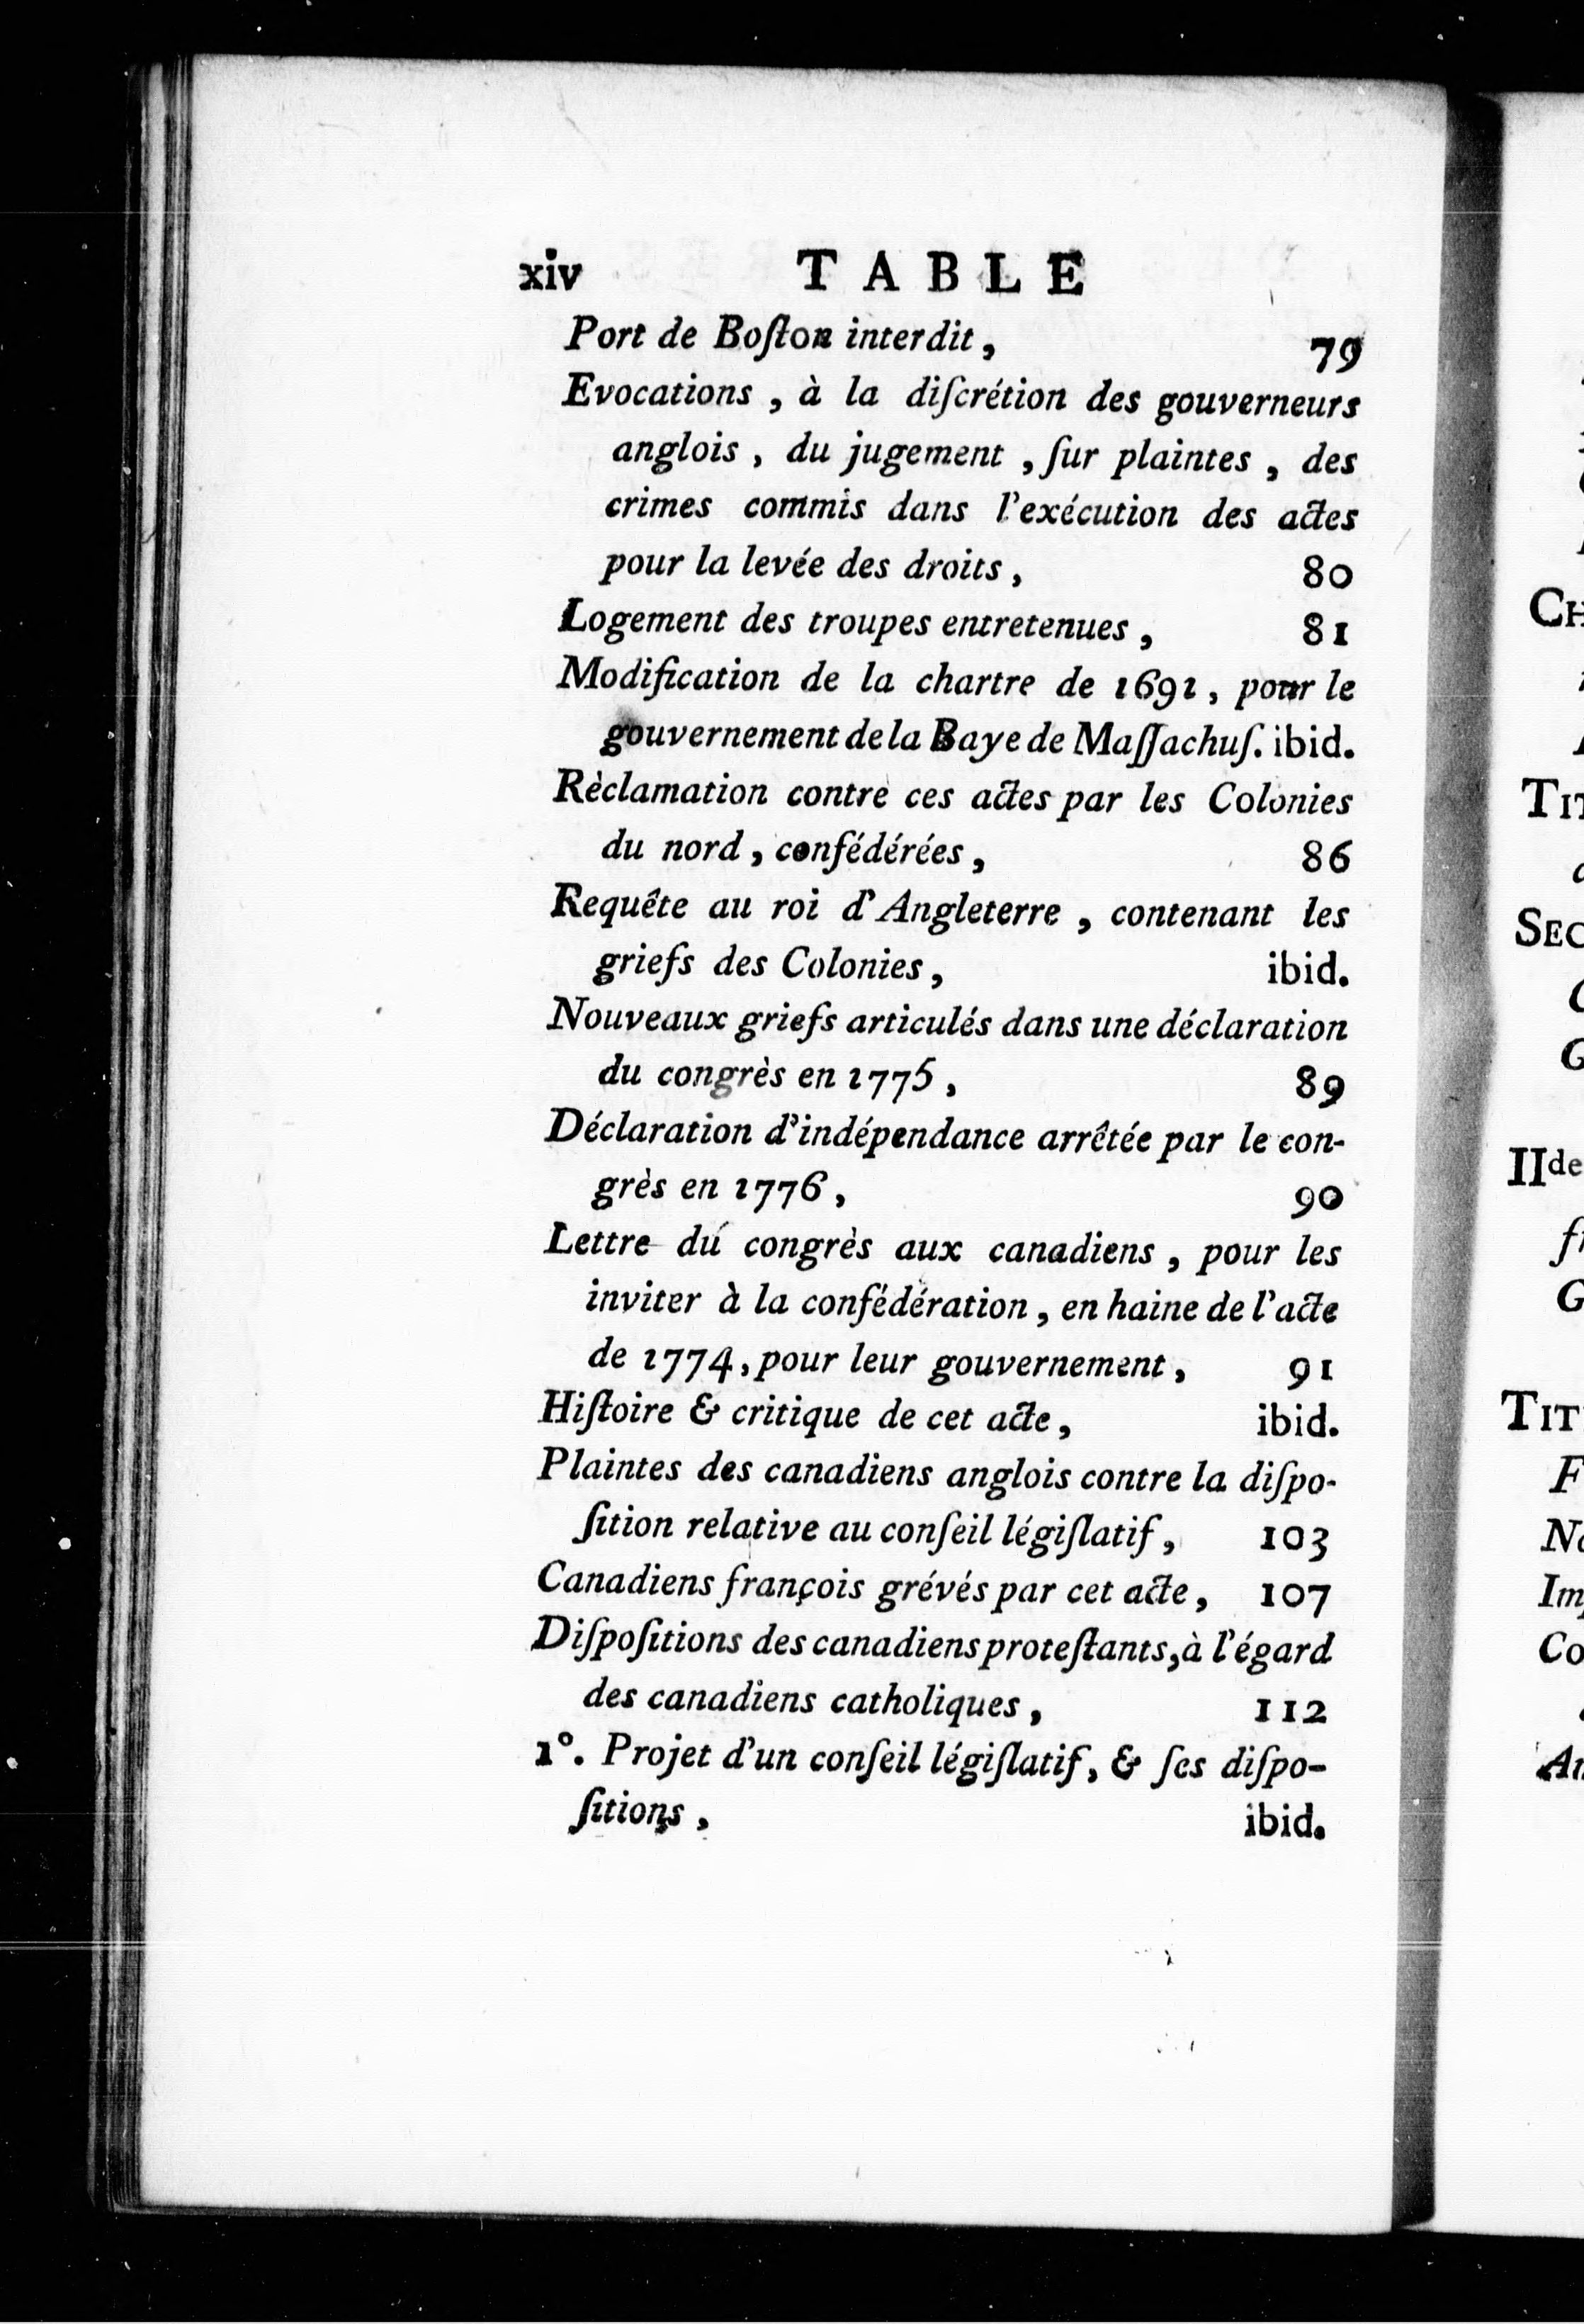 xiv TABLE
Port de Boſton interdit, 79
Evocations, à la diſcrétion des gouverneurs
anglois, du jugement, ſur plaintes, des
crimes commis dans l'exécution des actes
pour la levée des droits, 80
Logement des troupes entretenues, 81
Modification de la chartre de 1691, pour le
gouvernement de la Baye de Maſſachuſ. ibid.
Rèclamation contre ces actes par les Colonies
du nord, confédérées, 86
Requête au roi d'Angleterre, contenant les
griefs des Colonies, ibid.
Nouveaux griefs articulés dans une déclaration
du congrès en 1775, 89
Déclaration d'indépendance arrêtée par le con-
grès en 1776, 90
Lettre du congrès aux canadiens, pour les
inviter à la confédération, en haine de l'acte
de 1774, pour leur gouvernement, 91
Hiſtoire & critique de cet acte, ibid.
Plaintes des canadiens anglois contre la diſpo-
ſition relative au conſeil légiſlatif, 103
Canadiens françois grévés par cet acte, 107
Diſpoſitions des canadiens proteſtants, à l'égard
des canadiens catholiques, 112
1°. Projet d'un conſeil légiſlatif, & ſes diſpo-
ſitions, ibid.